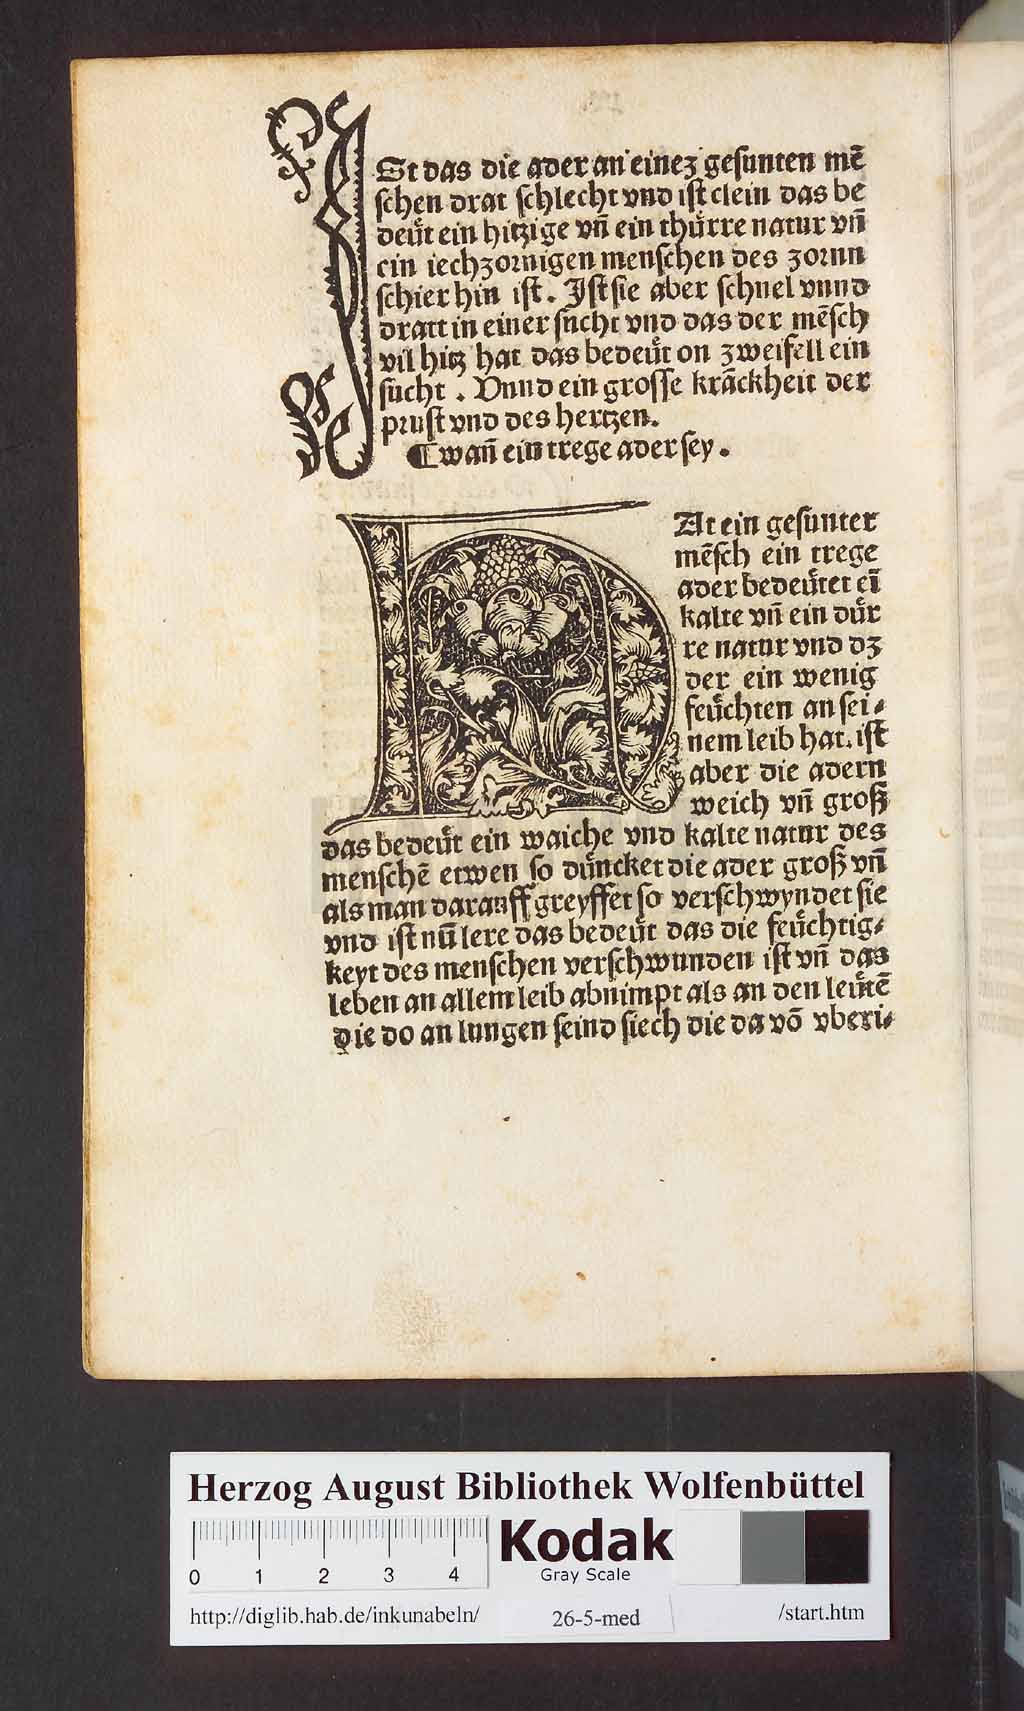 ISt das die ader an einez gesunten mē
schen drat schlecht vnd ist clein das be
deüt ein hitzige vn̄ ein thürre natur vn̄
ein iechzornigen menschen des zornn
schier hin ist. Ist sie aber schnel vnnd
dratt in einer sucht vnd das der mēsch
vil hitz hat das bedeüt on zweifell ein
sucht. Vnnd ein grosse krāckheit der
prust vnd des hertzen.
¶ wan̄ ein trege ader sey.
HAt ein gesunter
mēsch ein trege
ader bedeütet eī
kalte vn̄ ein dür
re natur vnd dz
der ein wenig
feüchten an sei⸗
nem leib hat. ist
aber die adern
weich vn̄ groß
das bedeüt ein waiche vnd kalte natur des
menschē etwen so düncket die ader groß vn̄
als man darauff greyffet so verschwyndet sie
vnd ist nū lere das bedeüt das die feüchtig⸗
keyt des menschen verschwunden ist vn̄ das
leben an allem leib abnimpt als an den leütē
die do an lungen seind siech die da vō vberi⸗
Herzog August Bibliothek Wolfenbüttel
0 1 2 3 4
Kodak
Gray Scale
http://diglib.hab.de/inkunabeln/ 26-5-med /start.htm